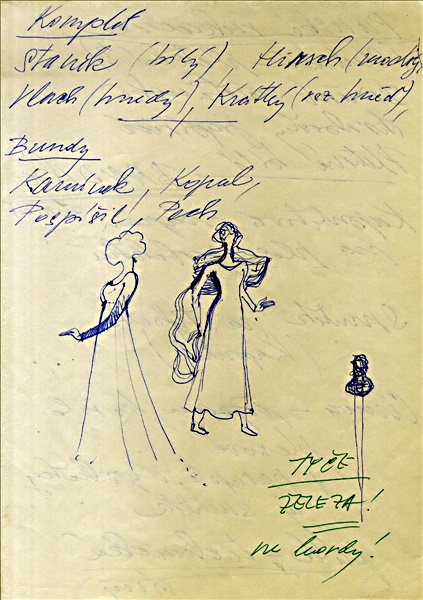 Komplet
Staněk (bílý), Hirsch (modrý),
Vlach (hnědý), Krátký (rez hněd),
Bundy
Kamínek, Kopal,
Pospíšil, Pech
TYČE
ŽELEZA!
ne kordy!